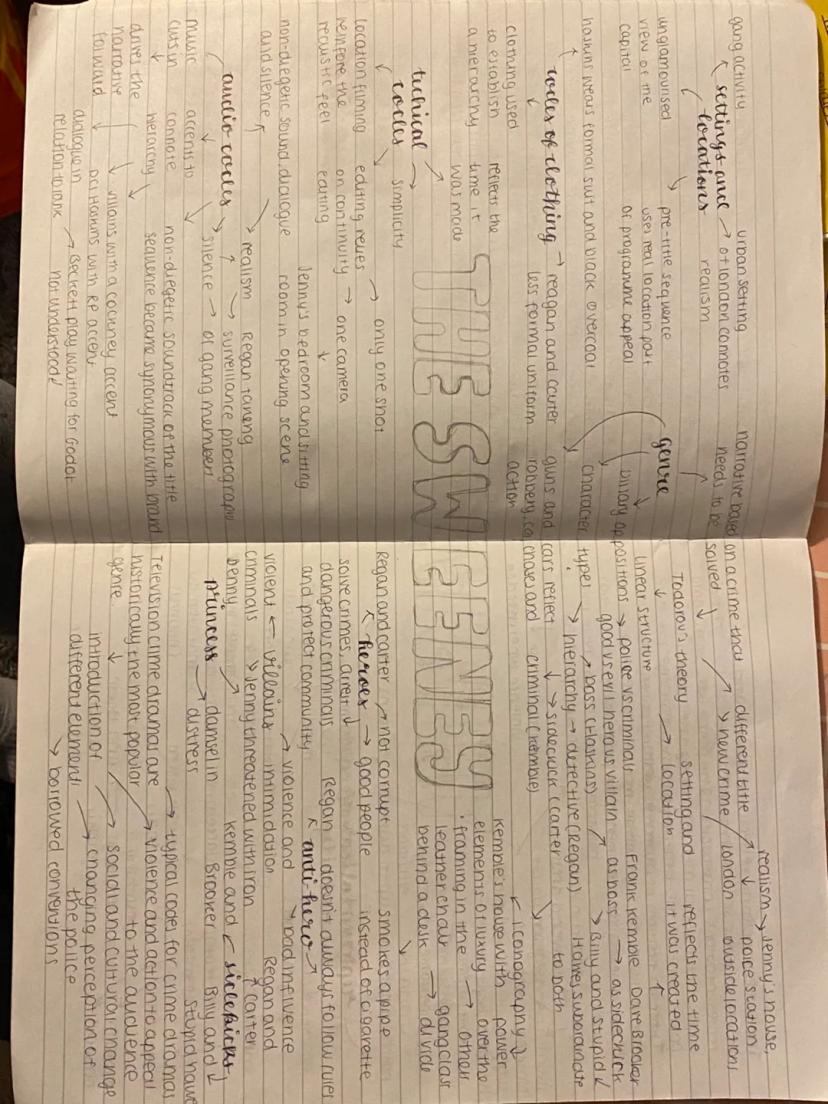 gang activity
settings and
locations
unglamourised
view of the
capital
urban setting
of london connotes
realism
pre-title sequence
uses real location part
of programme appeal
haskins wears formal suit and black overcoat
codes of clothing
clothing used
to establish
a hierarchy
reflects the
time it
was made
reagan and carter
less formal uniform
techical
codes
simplicity
location filming
reinfore the
realistic feel
editing relies
on continuity
editing
only one shot
one camera
Jenny's bedroom and sitting
room in opening scene
non-diegetic sound-dialogue
and silence
audio codes
realism
silence
Regan taking
surveillance photograph
of gang members
music
cutsin
drives the
narrative
forward
accents to
connote
hierarchy
non-diegetic soundtrack of the title
sequence became synonymous with brand
villains with a cockney accent
DCI Haskins with RP accent
dialogue in
relation to rank
Beckett play waiting for Godot
not understood
THE SWEENEY
genre
narrative based on a crime that
needs to be solved
different title
new crime
realism
Jenny's house,
police station
london outside locations
Todorov's theory
linear structure
setting and
location
reflects the time
it was created
binary oppositions
police vs criminals
good vs evil hero vs villain
Frank Kemble
as boss
Dave Brooker
as sidekick
character types
hierarchy
boss (Haskins)
detective (Regan)
sidekick (carter
criminal (Kemble)
Billy and stupid
Haines subordinate
to both
guns and cars reflect
robbery, car chases and
action
iconography
Kemble's house with
elements of luxury
framing in the
leather chair
behind a desk
power
over the
other
gang class
divide
Regan and carter
heroes
not corrupt
good people
solve crimes, arrest
dangerous criminals
and protect community
smokes a pipe
instead of cigarette
Regan doesn't always follow rules
anti-hero
villains
violent
criminals
violence and
intimidation
Jenny threatened with iron
bad influence
Regan and
carter
Denny
princess
damsel in
distress
Kemble and
Brooker
sidekicks
Billy and
stupid haw
Television crime dramas are
historically the most popular
genre
typical codes for crime dramas
violence and action to appeal
to the audience
introduction of
different elements
social and cultural change
changing perception of
the police
borrowed conventions